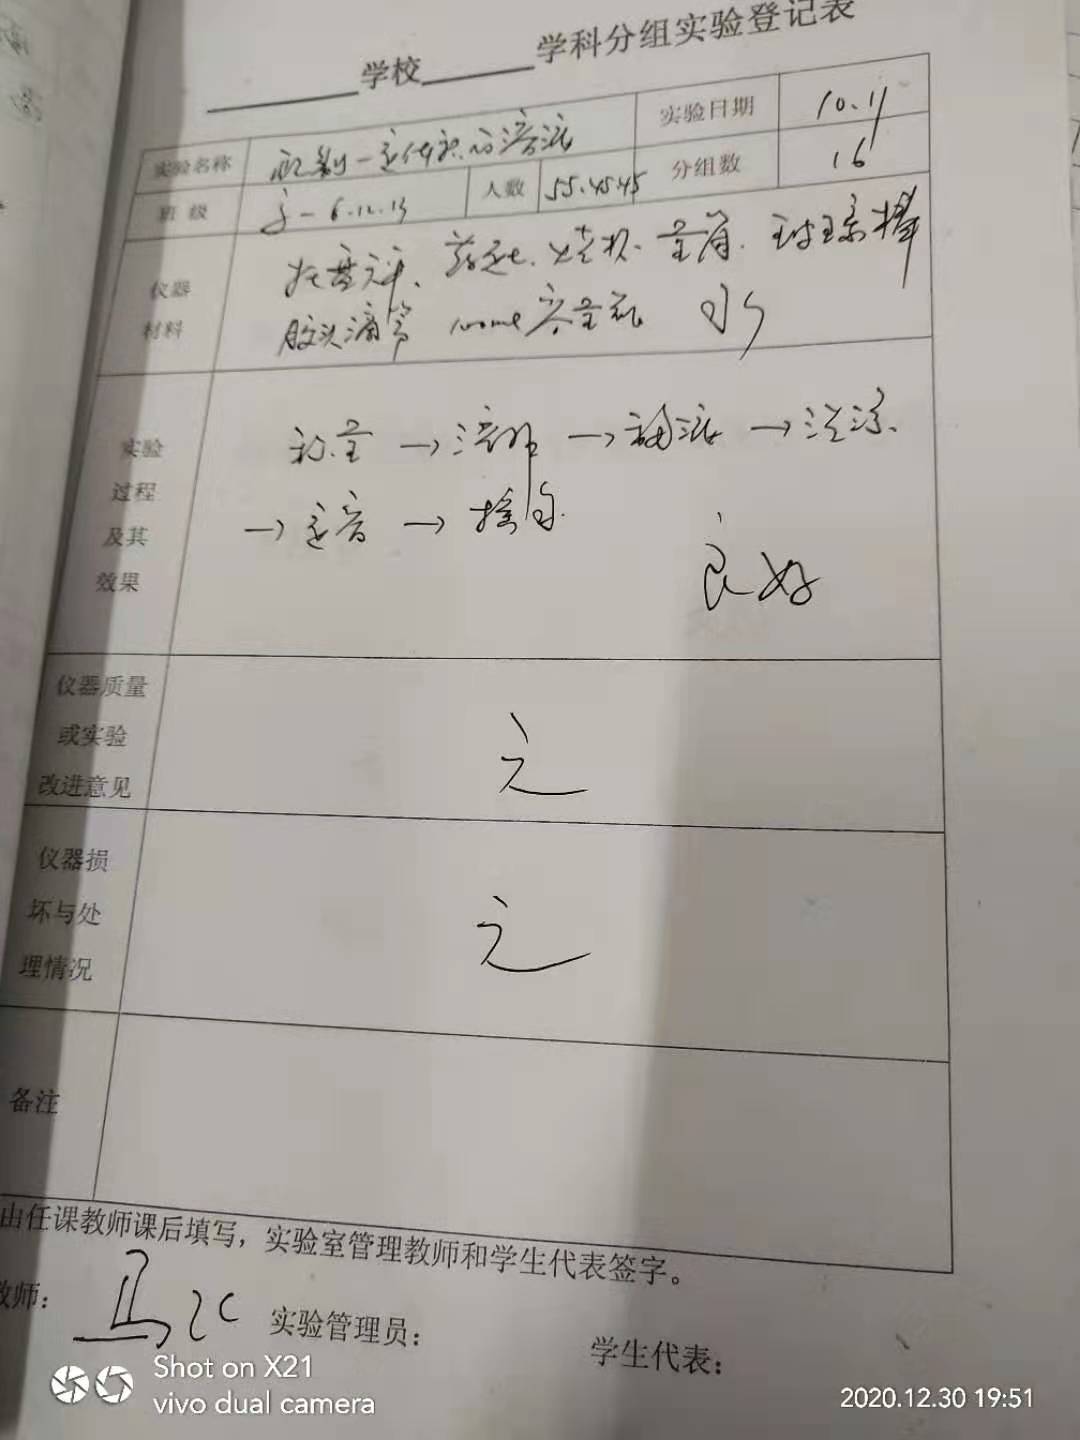 学校 学科分组实验登记表
实验名称 配制一定体积的溶液 实验日期 10.11
班级 高一6.12.13 人数 55.45.45 分组数 16
仪器材料 托盘天平、药匙、烧杯、量筒、玻璃棒
胶头滴管 100ml容量瓶 水
实验过程及其效果 称量→溶解→移液→洗涤
→定容→摇匀
良好
仪器质量或实验改进意见 无
仪器损坏与处理情况 无
备注
由任课教师课后填写，实验室管理教师和学生代表签字。
教师： 实验管理员： 学生代表：
Shot on X21
vivo dual camera
2020.12.30 19:51